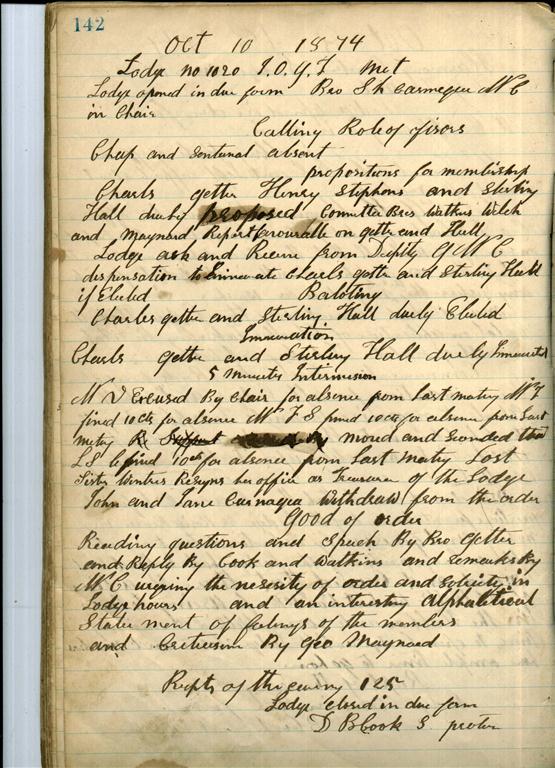 142
Oct 10 1874
Lodge no 1020 I.O.G.T met
Lodge opened in due form Bro S h Carnegee W C
in Chair
Calling Role of fisors
Chap and Sentunal absent
propositions for membership
Charls getter Henry Stiphens and Sterling
Hall duely proposed Committee Bros Watkins Welch
and Maynard Report favourable on gette and Hall
Lodge ask and Receive from Deputy G W C
dispensation to Charls gette and Sterling Hall
if Elected Baloting
Charles gette and Sterling Hall duely Elected
Charls gette and Sterling Hall duely
5 Minutes Intermision
Excused By Chair for absence from Last meting
fined 10 cts for absence fined 10 cts for absence from Last
meting moved and seconded that
L S be fined 10 cts for absence from Last Meeting Lost
Sister Winters Resigns her office as Treasurer of the Lodge
John and Jane Carnagea Withdraw from the order
Good of order
Reading questions and Speach By Bro Getter
and Reply By Cook and Watkins and remarks By
W C urging the nesesity of order and in
Lodge hours and an interesting alphabetical
State ment of falings of the members
and Criticism By Geo Maynard
Repts of the evening 125
Lodge Closed in due form
D B Cook S protem